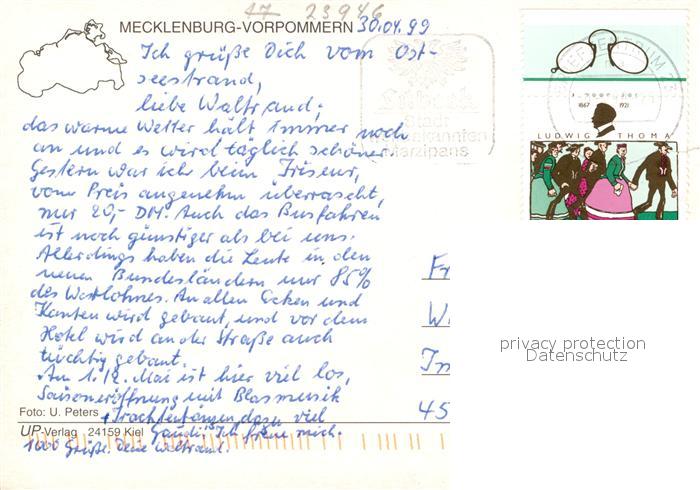 17 23946
MECKLENBURG-VORPOMMERN 30.04.99
Ich grüße Dich vom Ost-
seestrand,
liebe Waltraud;
das warme Wetter hält immer noch
an und es wird täglich schöner
Gestern war ich beim Friseur,
vom Preis angenehm überrascht,
nur 20,- DM. Auch das Busfahren
ist noch günstiger als bei uns.
Allerdings haben die Leute in den
neuen Bundesländern nur 85%
des Westlohnes. An allen Ecken und
Kanten wird gebaut, und vor dem
Hotel wird an der Straße auch
tüchtig gebaut.
Am 1./2. Mai ist hier viel los,
Saisoneröffnung mit Blasmusik
+ Trachtentänzen, dazu viel
Gaudi. Ich freue mich.
1000 Grüße. Deine Waltraud.
Foto: U. Peters
UP-Verlag 24159 Kiel
Lübeck
Stadt
Marzipans
1867 1921
LUDWIG THOMA
Fr
W
Im
45
privacy protection
Datenschutz